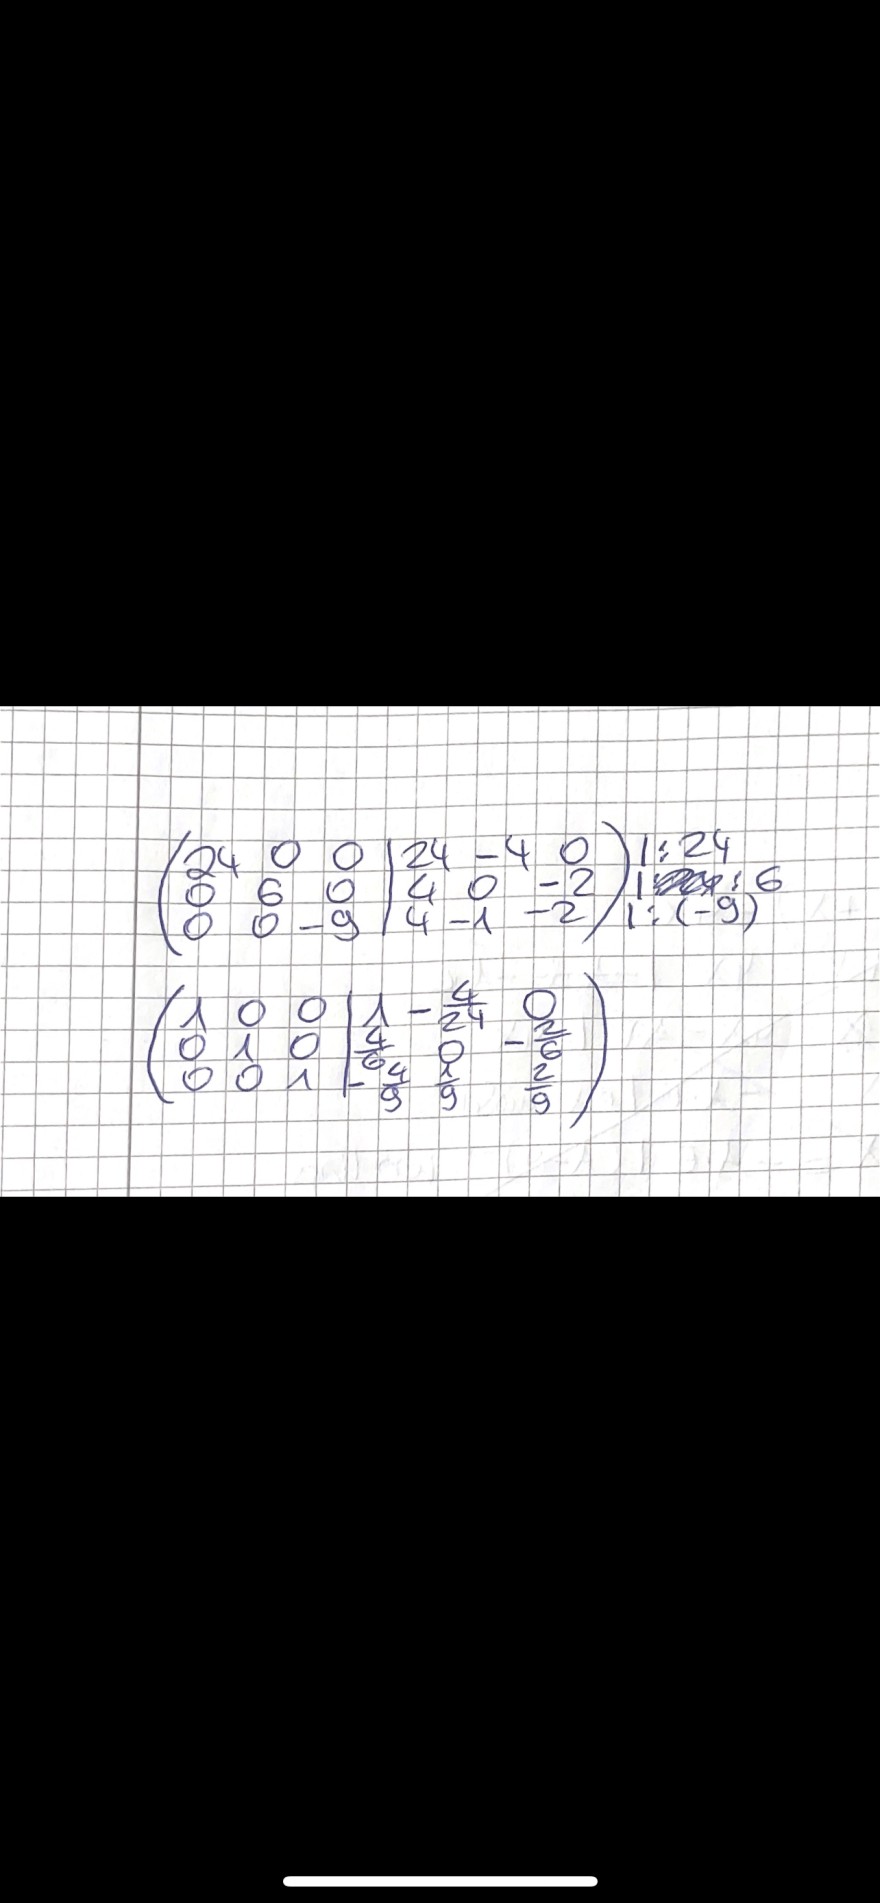 (24 0 0 | 24 -4 0) | : 24
(0 6 0 | 4 0 -2) | : 6
(0 0 -9 | 4 -1 -2) | : (-9)
(1 0 0 | 1 -4/24 0)
(0 1 0 | 4/6 0 -2/6)
(0 0 1 | -4/9 1/9 2/9)